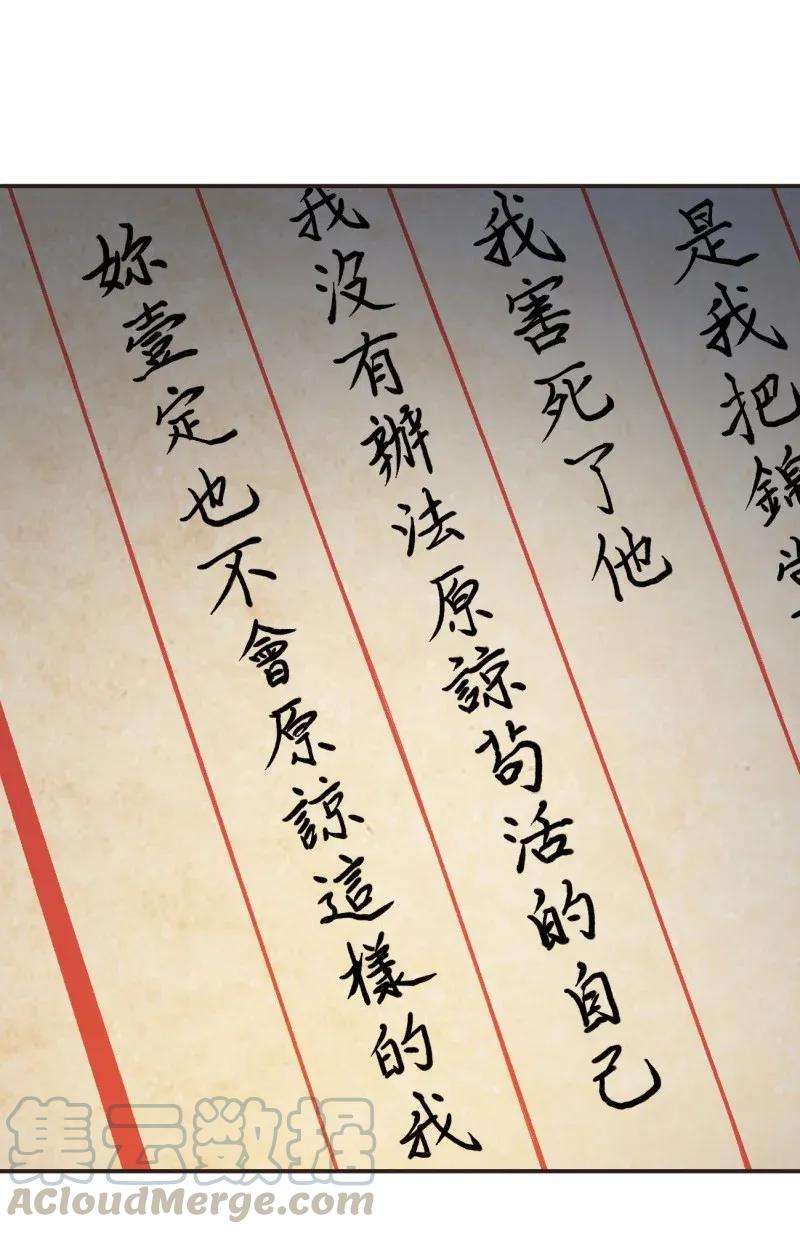 是我把錦
我害死了他
我沒有辦法原諒茍活的自己
妳壹定也不會原諒這樣的我
集云数据
ACloudMerge.com